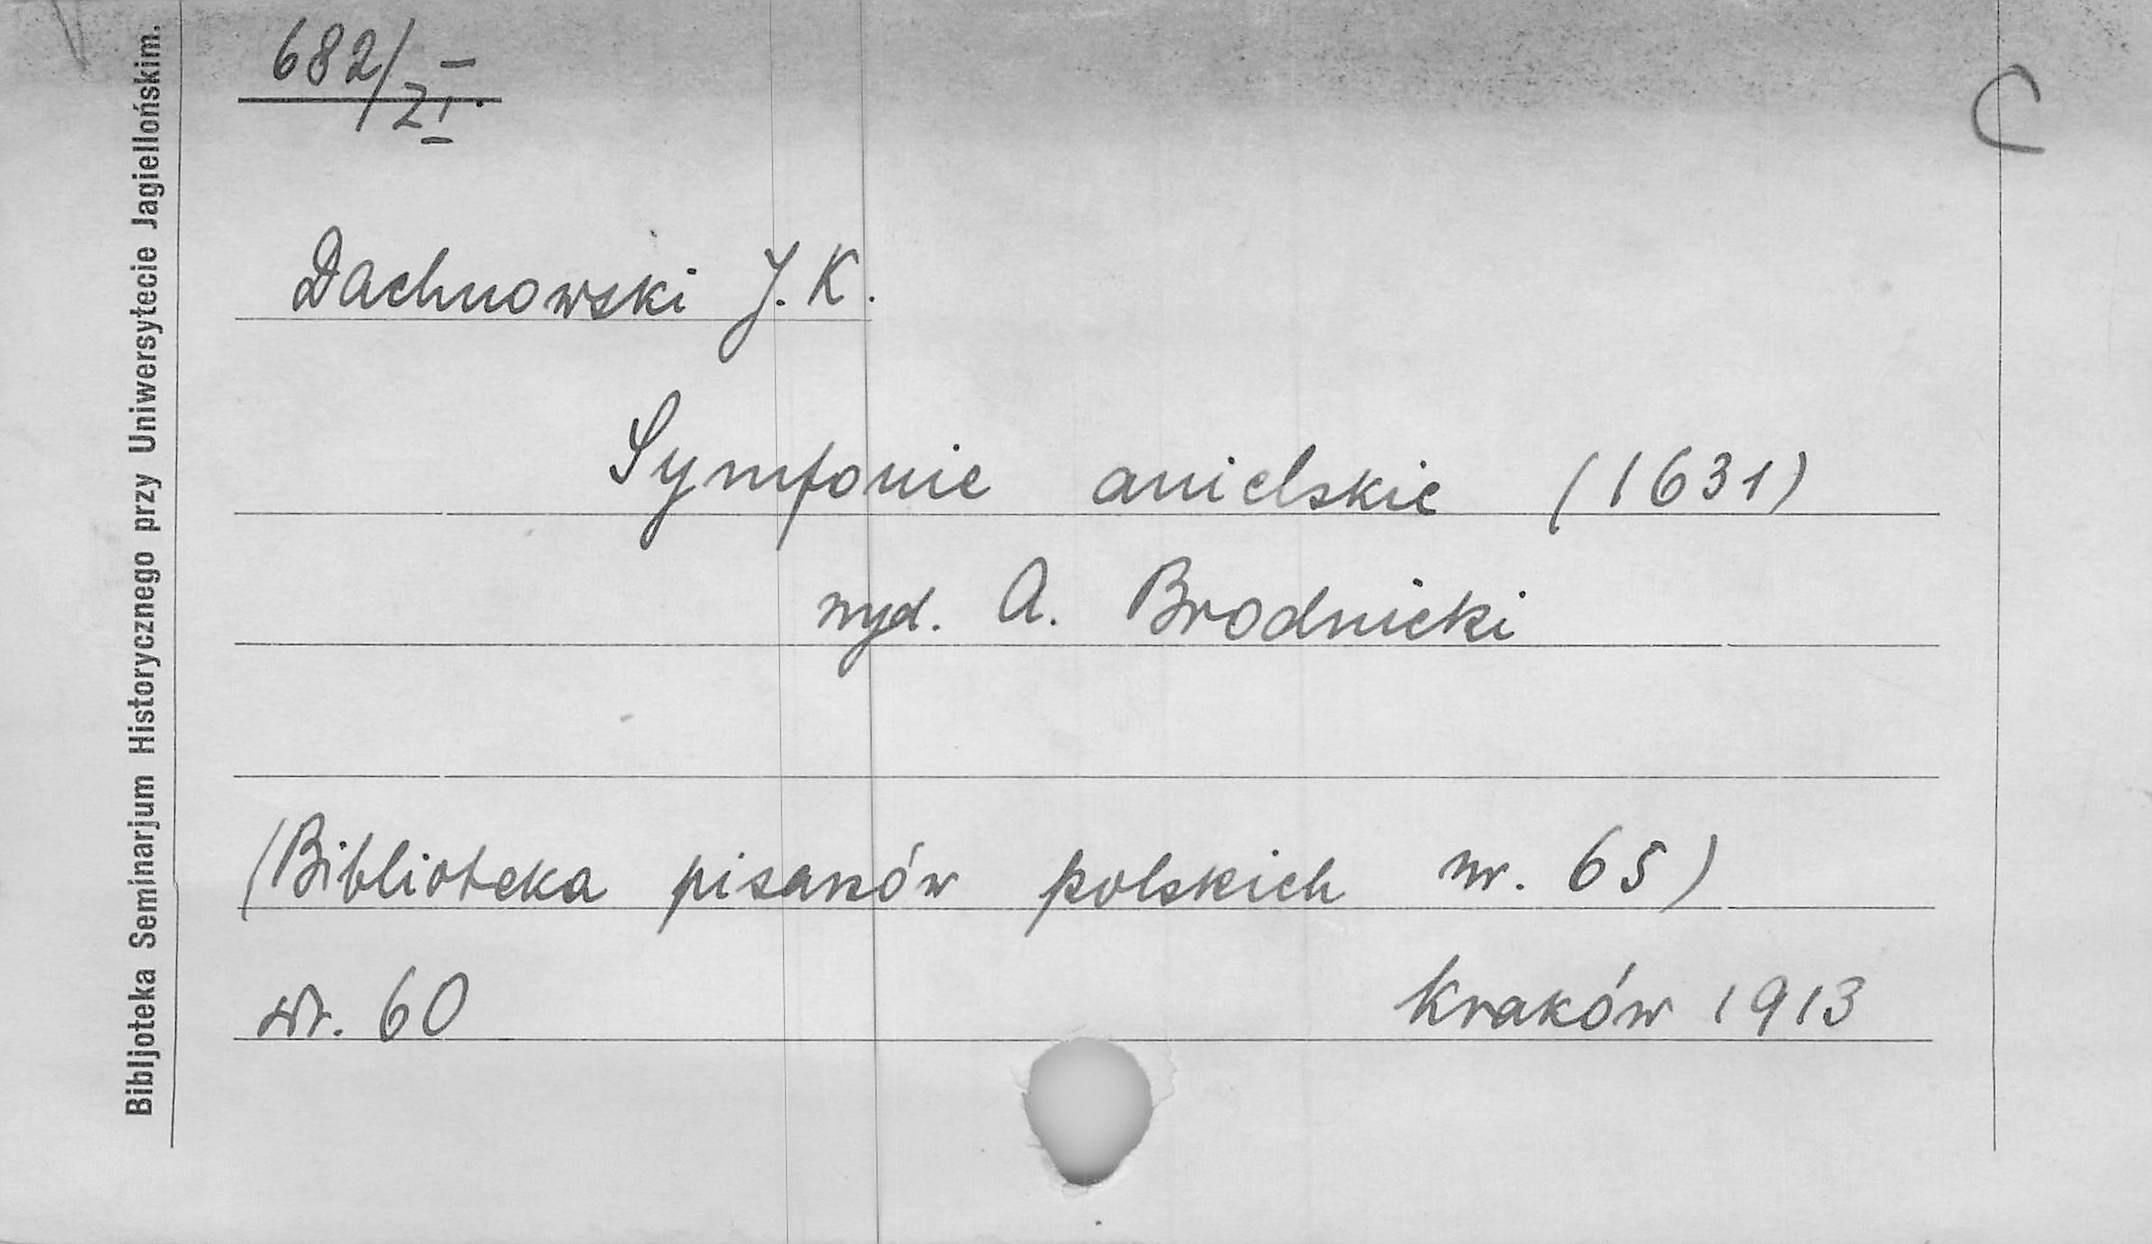 682/ZI.
C
Dachnowski J. K.
Symfonie anielskie (1631)
wyd. A. Brodnicki
(Biblioteka pisarzów polskich nr. 65)
str. 60 Kraków 1913
Bibljoteka Seminarjum Historycznego przy Uniwersytecie Jagiellońskim.